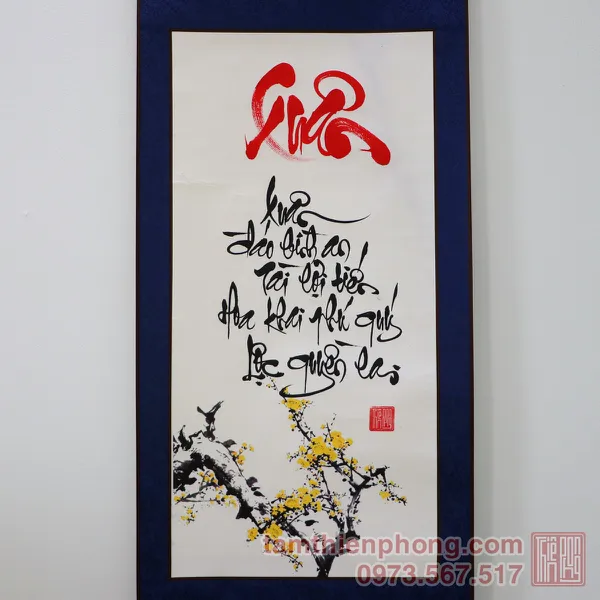 Xuân
Xuân
đáo bình an
Tài lợi tiến
Hoa khai phú quý
Lộc quyền lai
tamthienphong.com
0973.567.517